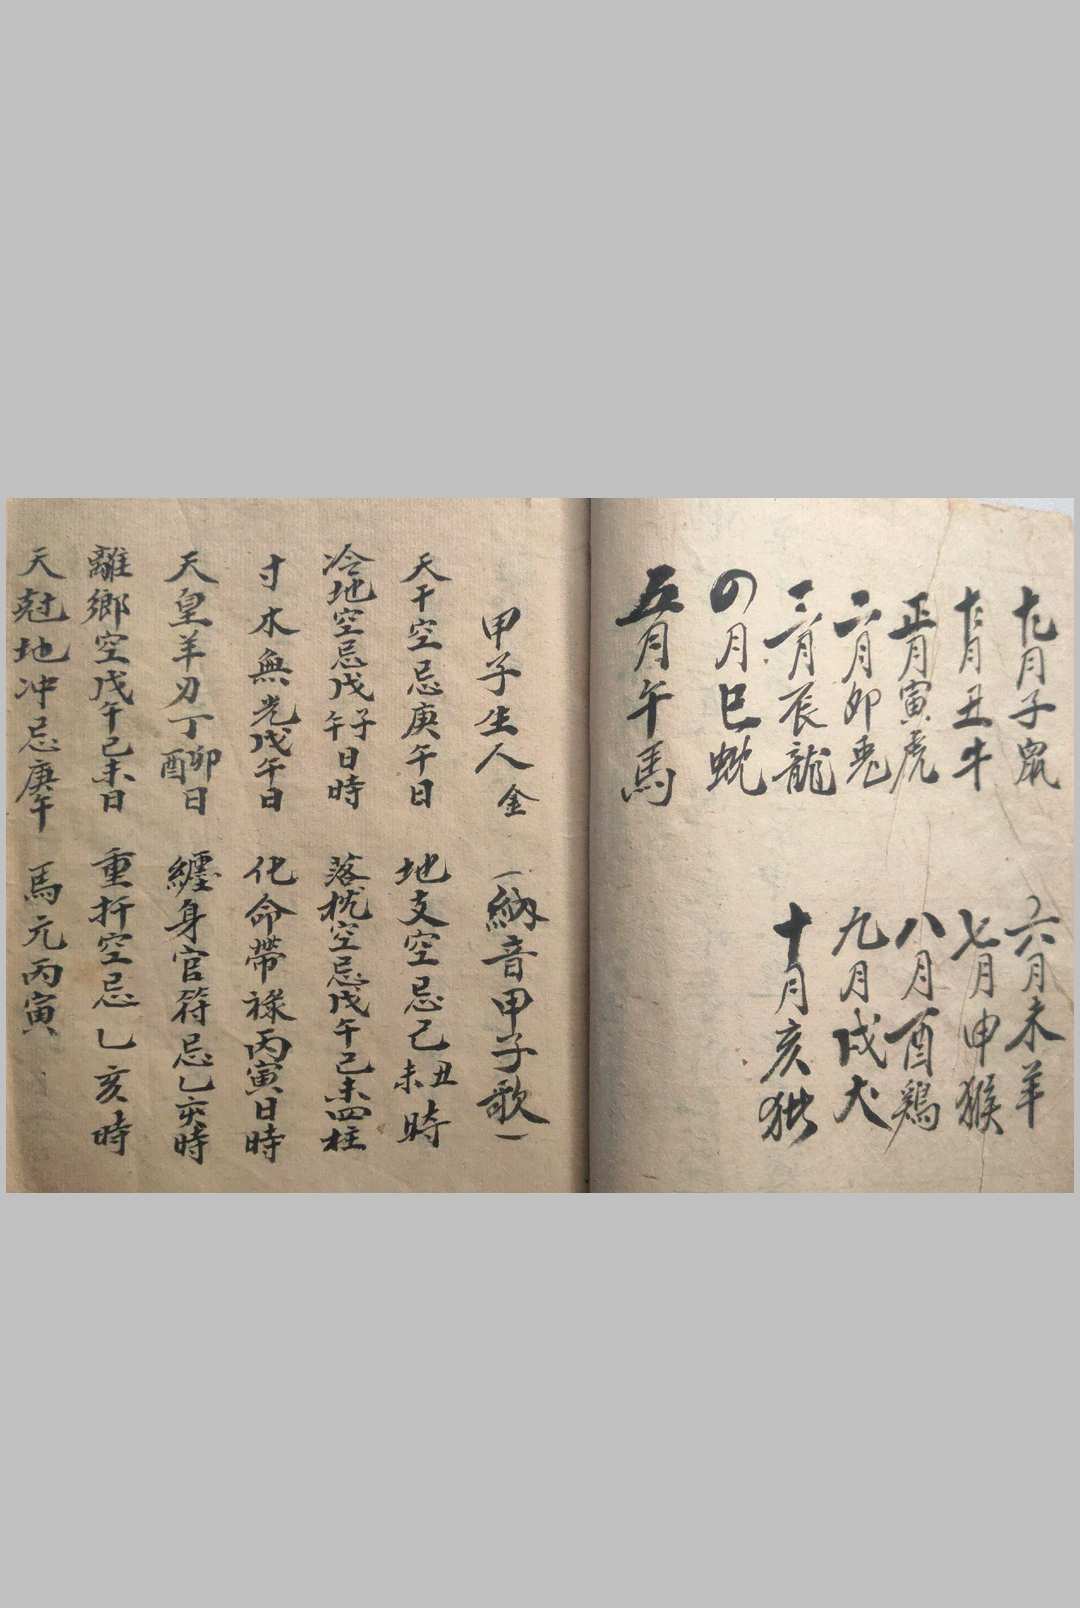 十一月子鼠
十二月丑牛
正月寅虎
二月卯兎
三月辰龍
四月巳蛇
五月午馬
六月未羊
七月申猴
八月酉鶏
九月戌犬
十月亥猪
甲子生人金
(納音甲子歌)
天干空忌庚午日
地支空忌己丑未時
冷地空忌戊子午日時
落枕空忌戊午己未四柱
寸水無光戊午日
化命帶祿丙寅日時
天皇羊刃丁卯酉日
纏身官符忌乙亥時
離鄉空戊午己未日
重扦空忌乙亥時
天尅地冲忌庚午
馬元丙寅